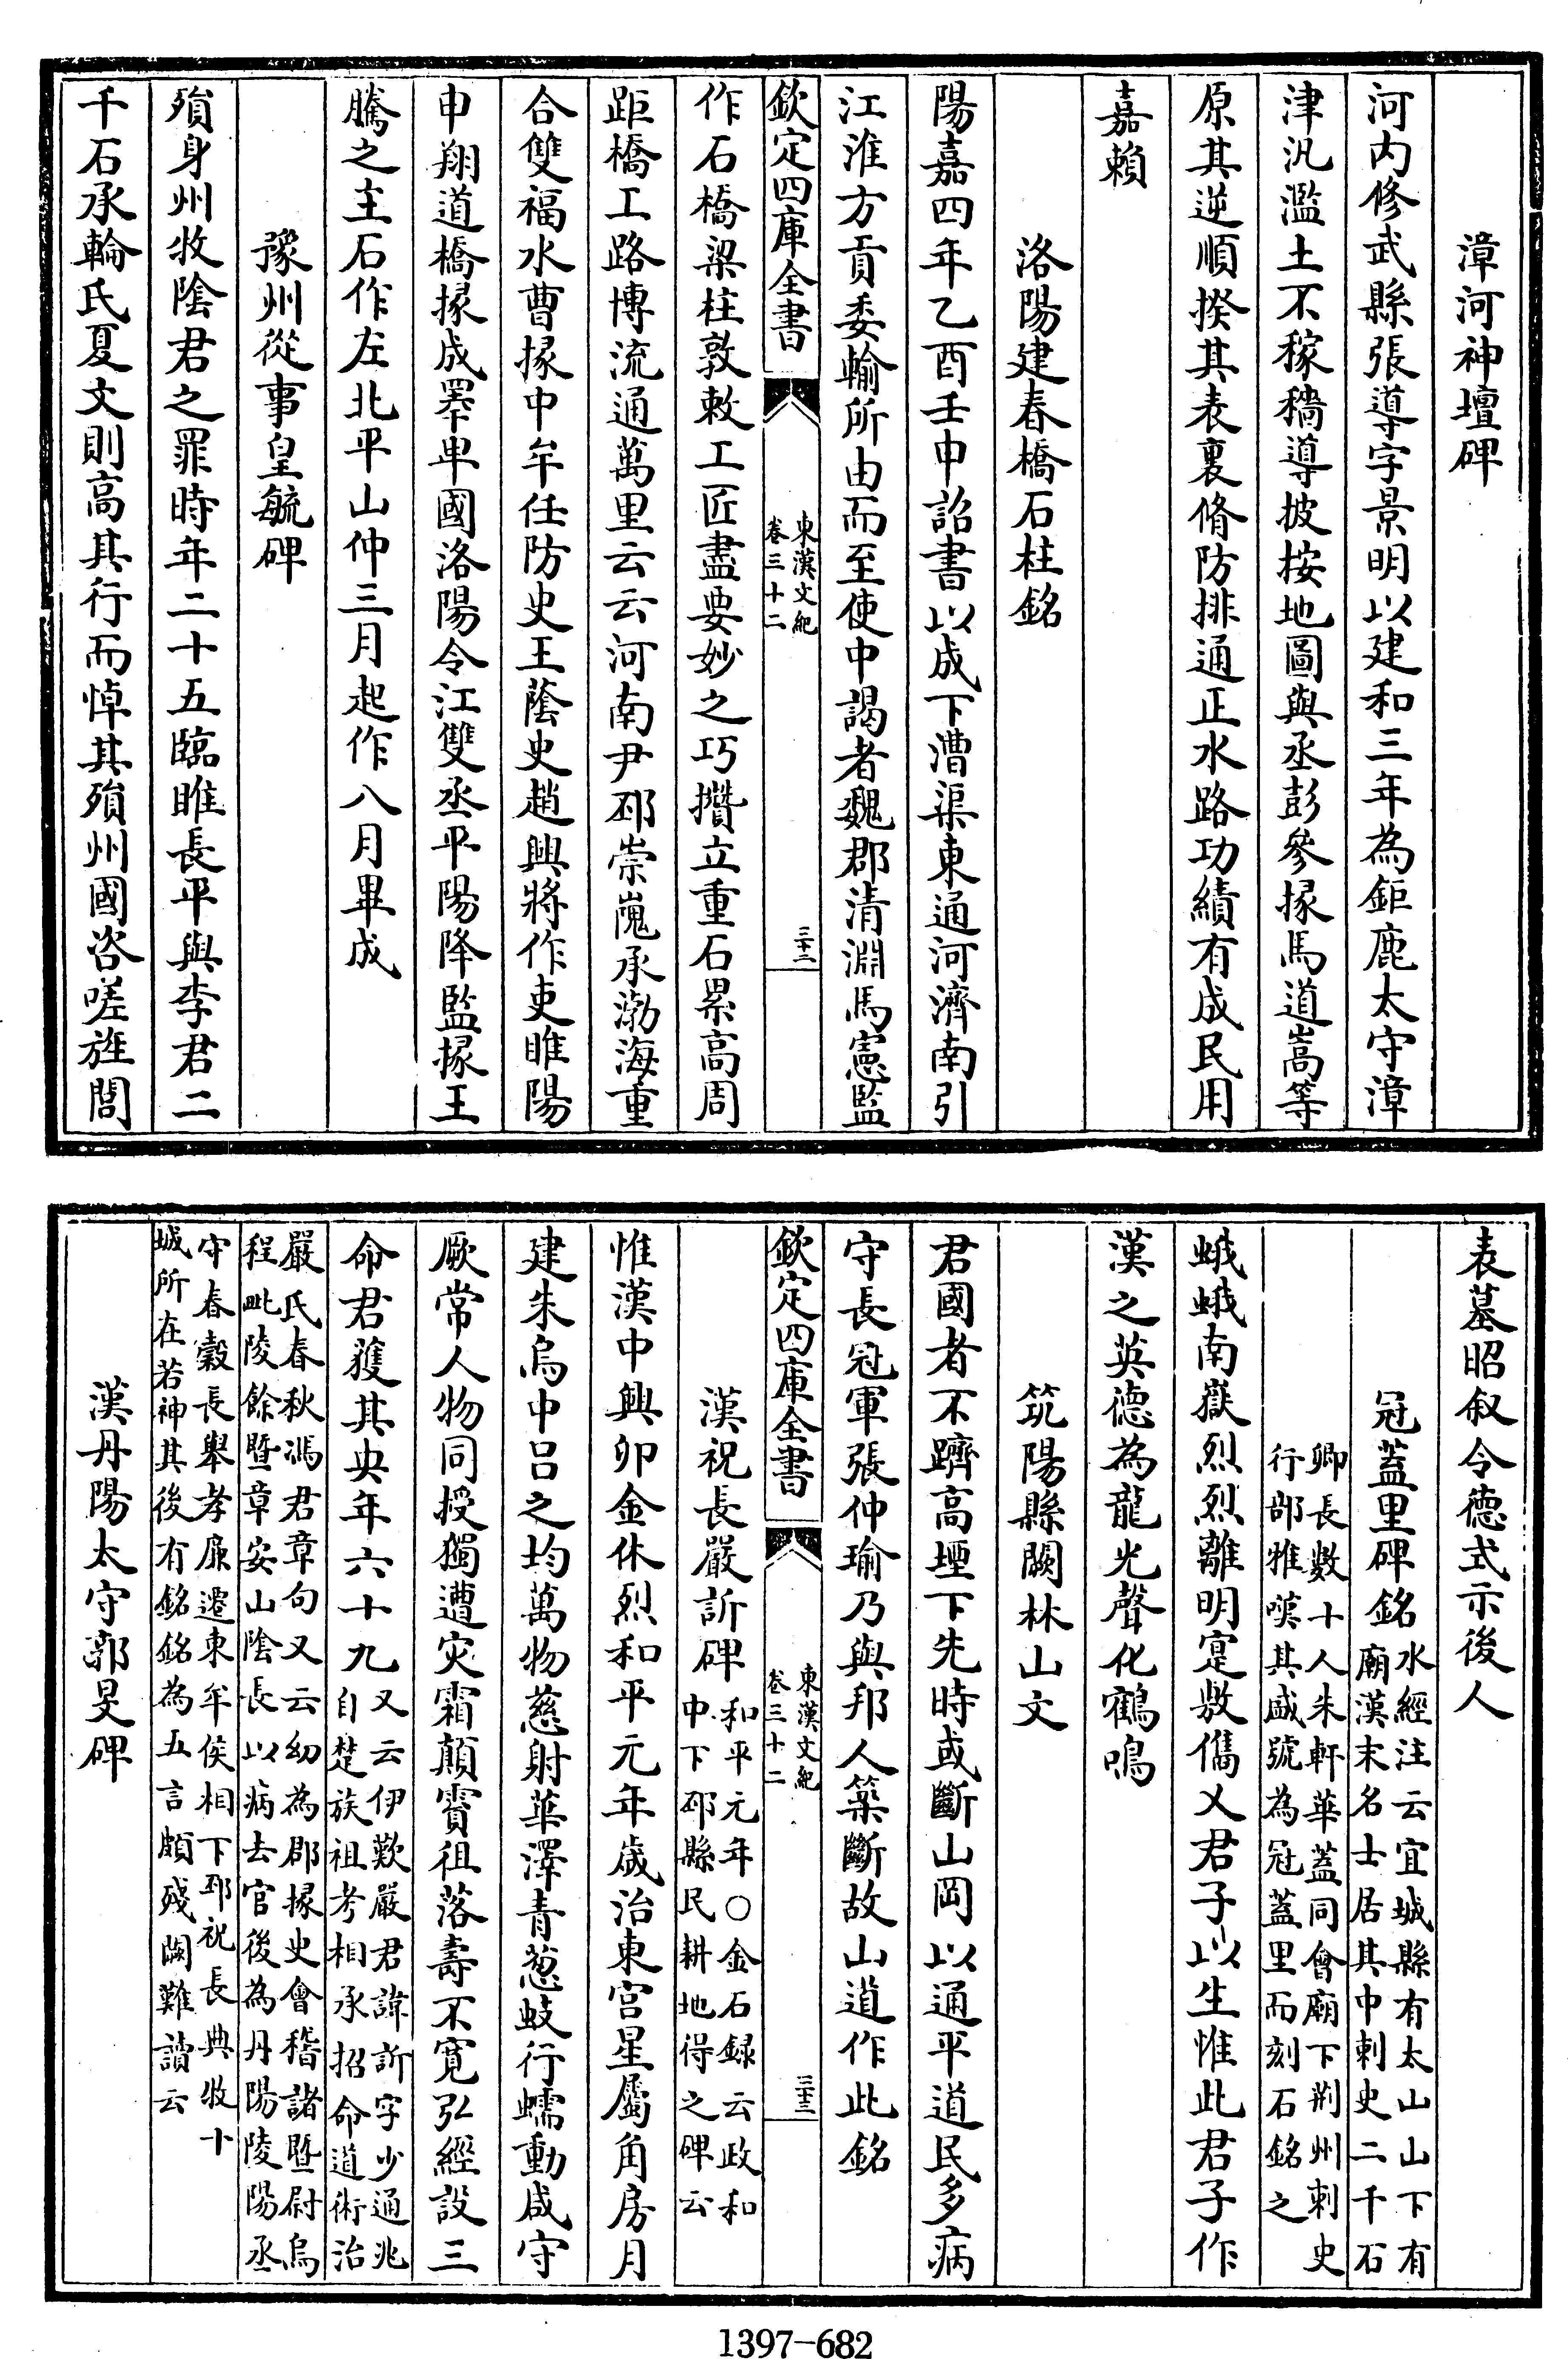 漳河神壇碑
河内修武縣張導字景明以建和三年為鉅鹿太守漳
津汎濫土不稼穡導披按地圖與丞彭參掾馬道嵩等
原其逆順揆其表裏脩防排通正水路功績有成民用
嘉賴
洛陽建春橋石柱銘
陽嘉四年乙酉壬申詔書以成下漕渠東通河濟南引
江淮方貢委輸所由而至使中謁者魏郡清淵馬憲監
欽定四庫全書
東漢文紀
卷三十二
三十二
作石橋梁柱敦敕工匠盡要妙之巧攢立重石累高周
距橋工路博流通萬里云云河南尹邳崇嵬丞渤海重
合雙福水曹掾中牟任防史王蔭史趙興將作吏睢陽
申翔道橋掾成睪卑國洛陽令江雙丞平陽降監掾王
騰之主石作左北平山仲三月起作八月畢成
豫州從事皇毓碑
殞身州牧隂君之罪時年二十五臨睢長平與李君二
千石丞輪氏夏文則高其行而悼其殞州國咨嗟旌閭
表墓昭叙令德式示後人
冠蓋里碑銘
水經注云宜城縣有太山山下有
廟漢末名士居其中刺史二千石
卿長數十人朱軒華蓋同會廟下荆州刺史
行部雅嘆其盛號為冠蓋里而刻石銘之
峨峨南嶽烈烈離明寔敷儁乂君子以生惟此君子作
漢之英德為龍光聲化鶴鳴
筑陽縣闕林山文
君國者不躋高堙下先時或斷山岡以通平道民多病
守長冠軍張仲瑜乃與邦人築斷故山道作此銘
欽定四庫全書
東漢文紀
卷三十二
三十三
漢祝長嚴訢碑
和平元年○金石録云政和
中下邳縣民耕地得之碑云
惟漢中興卯金休烈和平元年歳治東宫星屬角房月
建朱烏中呂之均萬物慈射華澤青葱蚑行蠕動咸守
厥常人物同授獨遭灾霜顛賓徂落壽不寛弘經設三
命君獲其央年六十九
又云伊歎嚴君諱訢字少通兆
自楚族祖考相承招命道術治
嚴氏春秋馮君章句又云幼為郡掾史會稽諸暨尉烏
程毗陵餘暨章安山隂長以病去官後為丹陽陵陽丞
守春穀長舉孝廉遷東牟侯相下邳祝長典牧十
城所在若神其後有銘銘為五言頗殘闕難讀云
漢丹陽太守郭旻碑
1397-682